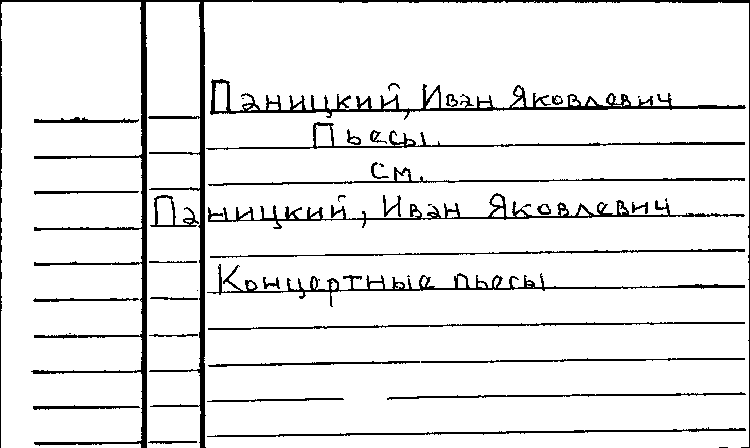 Паницкий, Иван Яковлевич
Пьесы.
см.
Паницкий, Иван Яковлевич
Концертные пьесы